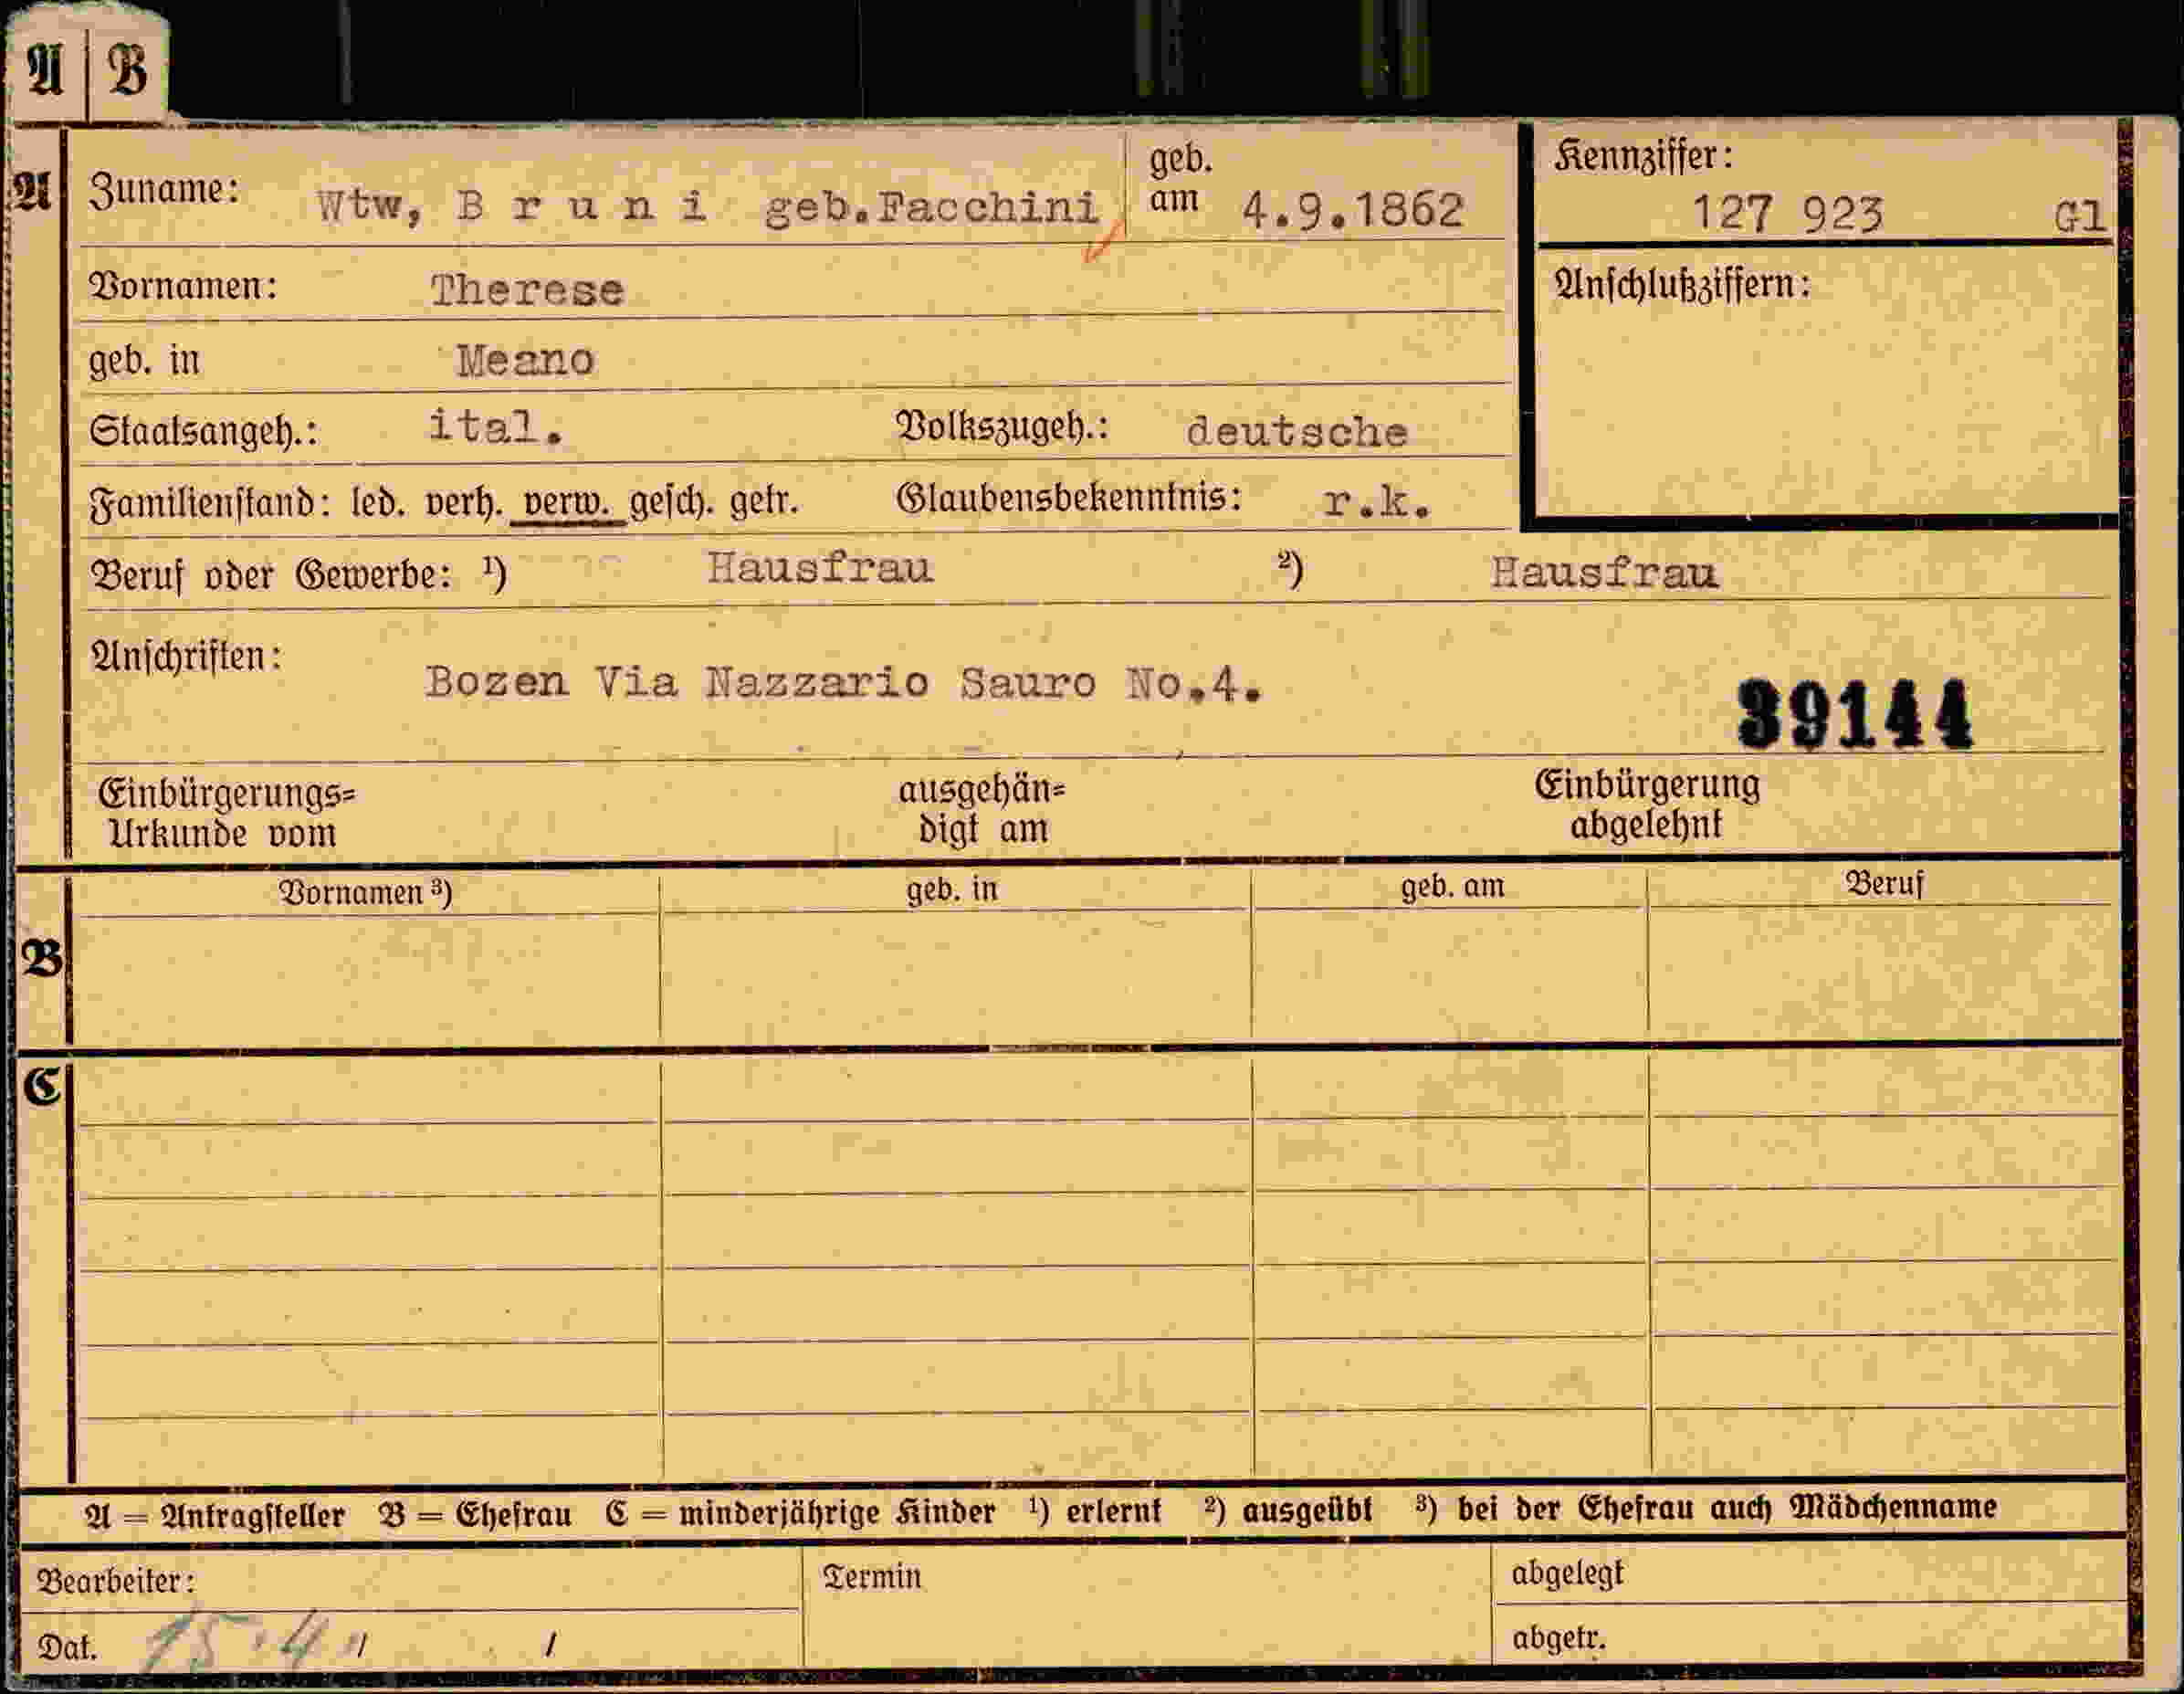 A B
A Zuname: Wtw, B r u n i geb.Facchini geb. am 4.9.1862 Kennziffer: 127 923 Gl
Vornamen: Therese Anschlußziffern:
geb. in Meano
Staatsangeh.: ital. Volkszugeh.: deutsche
Familienstand: led. verh. verw. gesch. getr. Glaubensbekenntnis: r.k.
Beruf oder Gewerbe: ¹) Hausfrau ²) Hausfrau
Anschriften: Bozen Via Nazzario Sauro No.4.
39144
Einbürgerungs= ausgehän= Einbürgerung
Urkunde vom digt am abgelehnt
Vornamen ³) geb. in geb. am Beruf
B
C
A = Antragsteller B = Ehefrau C = minderjährige Kinder ¹) erlernt ²) ausgeübt ³) bei der Ehefrau auch Mädchenname
Bearbeiter: Termin abgelegt
Dat. 15.4. / / abgetr.